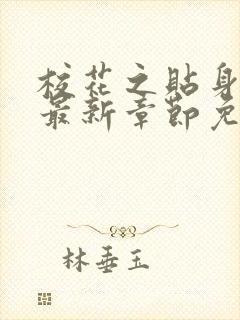 校花之貼身
最新章節免
林垂玉